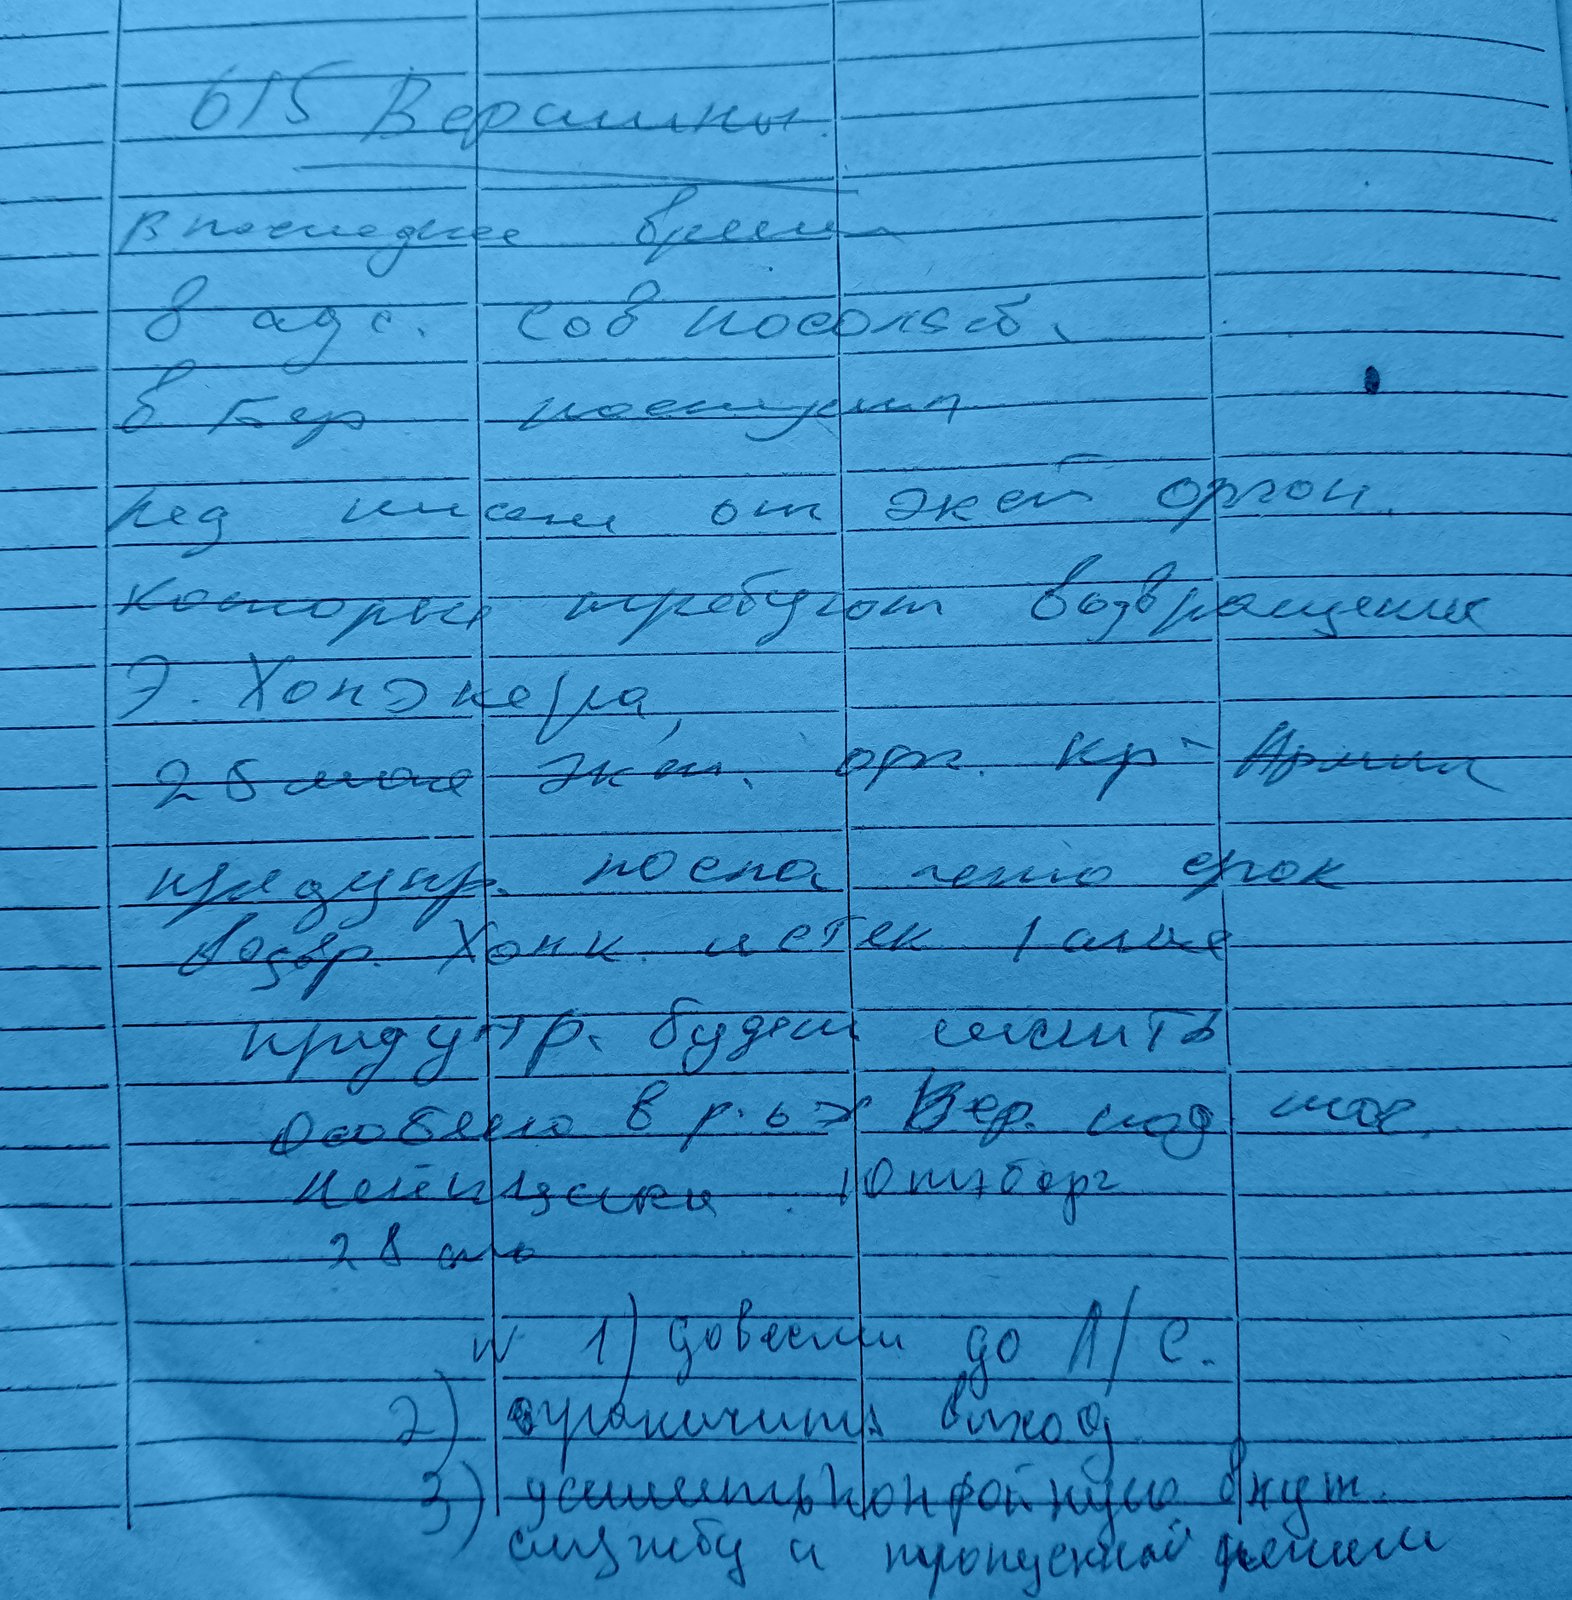 615 Вершины
В последнее время
в адс. Сов посольств.
в Бер поступил
ряд писем от экст орган.
которые требуют возвращения
Э. Хонэкера,
28 мая экст. орг. Кр Армия
предупр. посла что срок
возвр. Хонк. истек 1 мая
предупр. будет мстить
Особено в р-ох Вер. под
28
1) довести до Л/С.
2) ограничить выход
3) усилить конвойную внут.
службу и пропускной режим